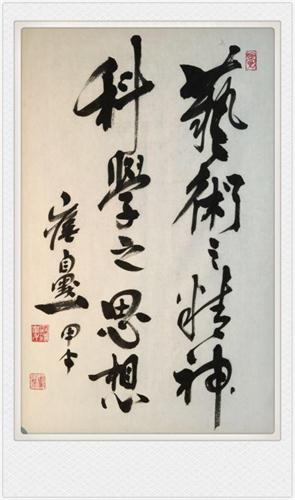 藝術之精神
科學之思想
自
甲午